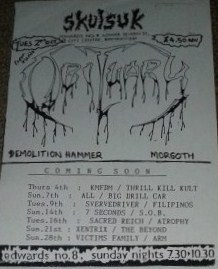 SKUISUK
TUES 2nd
£4.50
OBITUARY
DEMOLITION HAMMER MORGOTH
COMING SOON
Thurs 4th : KMFDM / THRILL KILL KULT
Sun.7th : ALL / BIG DRILL CAR
Tues.9th : SWERVEDRIVER / FILIPINOS
Sun.14th : 7 SECONDS / S.O.B.
Tues.16th : SACRED REICH / ATROPHY
Sun.21st : XENTRIX / THE BEYOND
Sun.28th : VICTIMS FAMILY / ARM
edwards no.8. sunday nights 7.30-10.30